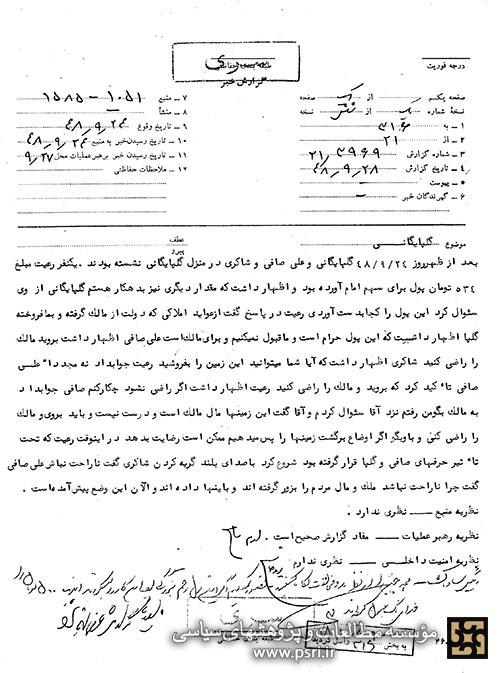 سری
گزارش خبر
درجه فوریت
صفحه یکم از یک صفحه
نسخه شماره از نسخه
۱ ـ به ۳۱۶
۲ ـ از ۲۱
۳ ـ شماره گزارش ۲۱/۳۹۶۹
۴ ـ تاریخ گزارش ۴۸/۹/۲۸
۵ ـ پیوست
۶ ـ گیرندگان خبر
۷ ـ منبع ۱۰۵۱ ـ ۱۵۸۵
۸ ـ منشأ
۹ ـ تاریخ وقوع ۴۸/۹/۲۴
۱۰ ـ تاریخ رسیدن خبر به منبع ۴۸/۹/۲۴
۱۱ ـ تاریخ رسیدن خبر برهبر عملیات محل ۹/۲۷
۱۲ ـ ملاحظات حفاظتی
موضوع گلپایگانی
عطف
پیرو
بعد از ظهرروز ۴۸/۹/۲۴ گلپایگانی وعلی صافی و شاکری در منزل گلپایگانی نشسته بودند . یکنفر رعیت مبلغ
۵۳۴ تومان پول برای سهم امام آورده بود و اظهارداشت که مقدار دیگری نیز بدهکار هستم گلپایگانی از وی
سئوال کرد این پول را کجابدست آوردی رعیت در پاسخ گفت ازعواید املاکی که دولت از مالک گرفته و بمافروخته
گلپا اظهارداشت که این پول حرام است و ماقبول نمیکنیم و برای مالک است علی صافی اظهارداشت بروید مالک
را راضی کنید شاکری اظهارداشت که آیا شما میتوانید این زمین را بفروشید رعیت جوابداد نه مجدداً علی
صافی تاءکید کرد که بروید و مالک را راضی کنید رعیت اظهارداشت اگر راضی نشود چکارکنم صافی جوابداد
به مالک بگومن رفتم نزد آقا سئوال کردم و آقا گفت این زمینها مال مالک است و درست نیست و باید بروی و مالک
را راضی کنی و باوبگو اگر اوضاع برگشت زمینها را پس میدهیم ممکن است رضایت بدهد در اینوقت رعیت که تحت
تاءثیر حرفهای صافی و گلپا قرار گرفته بود شروع کرد باصدای بلند گریه کردن شاکری گفت ناراحت نباش علی صافی
گفت چرا ناراحت نباشد ملک و مال مردم را بزور گرفته اند و باینها داده اند و الآن این وضع پیش آمده است .
نظریه منبع ـ نظری ندارد .
نظریه رهبر عملیات ـ مفاد گزارش صحیح است .
نظریه امنیت داخلی ـ نظری ندارد
به بخش ۳۱۶ داخل گردید
مؤسسه مطالعات و پژوهشهای سیاسی
www.psri.ir